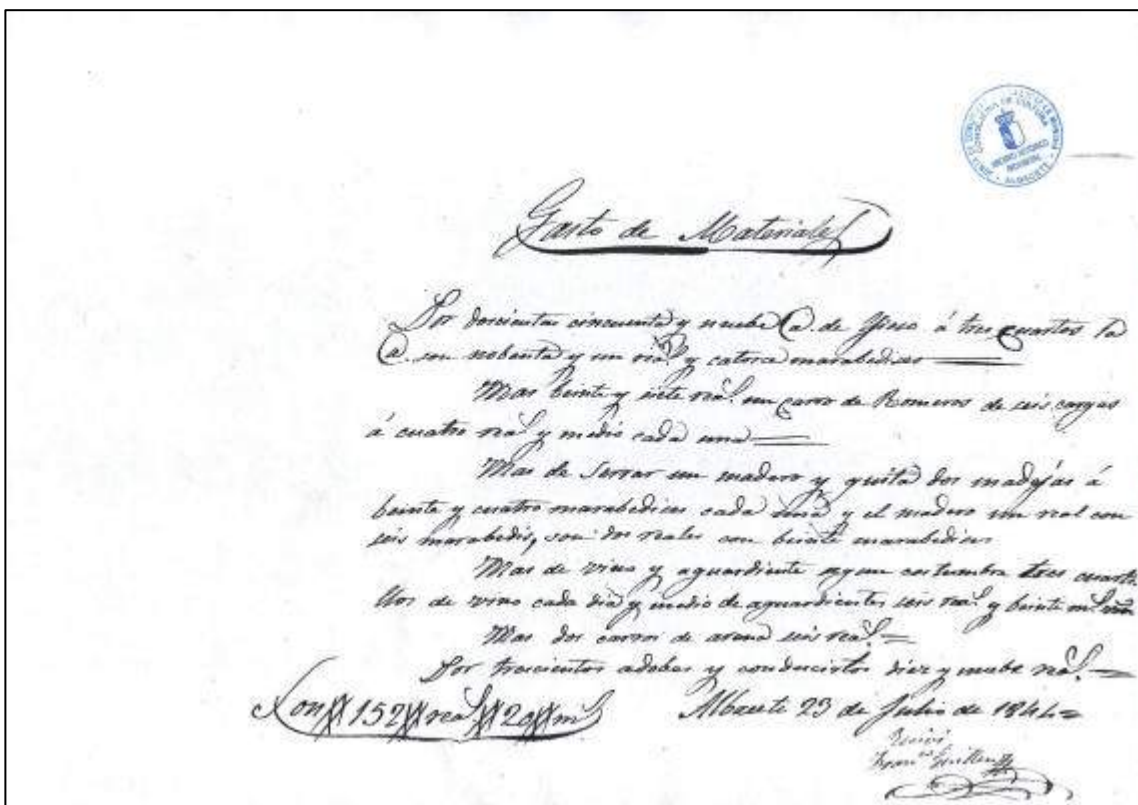 JUNTA DE COMUNIDADES DE CASTILLA-LA MANCHA
CONSEJERIA DE CULTURA
ARCHIVO HISTORICO
PROVINCIAL
ALBACETE
Gasto de Materiales
Por doscientas cincuenta y nuebe @. de Yieso á tres cuartos la
@. son nobenta y un rea.s y catorce marabedises
Mas beinte y siete rea.s un carro de Romeros de seis cargas
á cuatro rea.s y medio cada una
Mas de Serrar un madero y quitar dos madejas á
beinte y cuatro marabedises cada una y el madero un real con
seis marabedis, son dos reales con beinte marabedises
Mas de vino y aguardiente segun costumbre tres cuarti
llos de vino cada dia y medio de aguardiente seis rea.s y beinte m.s
Mas dos carros de arena seis rea.s =
Por trescientos adobes y conducirlos diez y nuebe rea.s =
Son 152 rea.s 20 m.s
Albacete 23 de Julio de 1844 =
Recivi
Fran.co Guillen